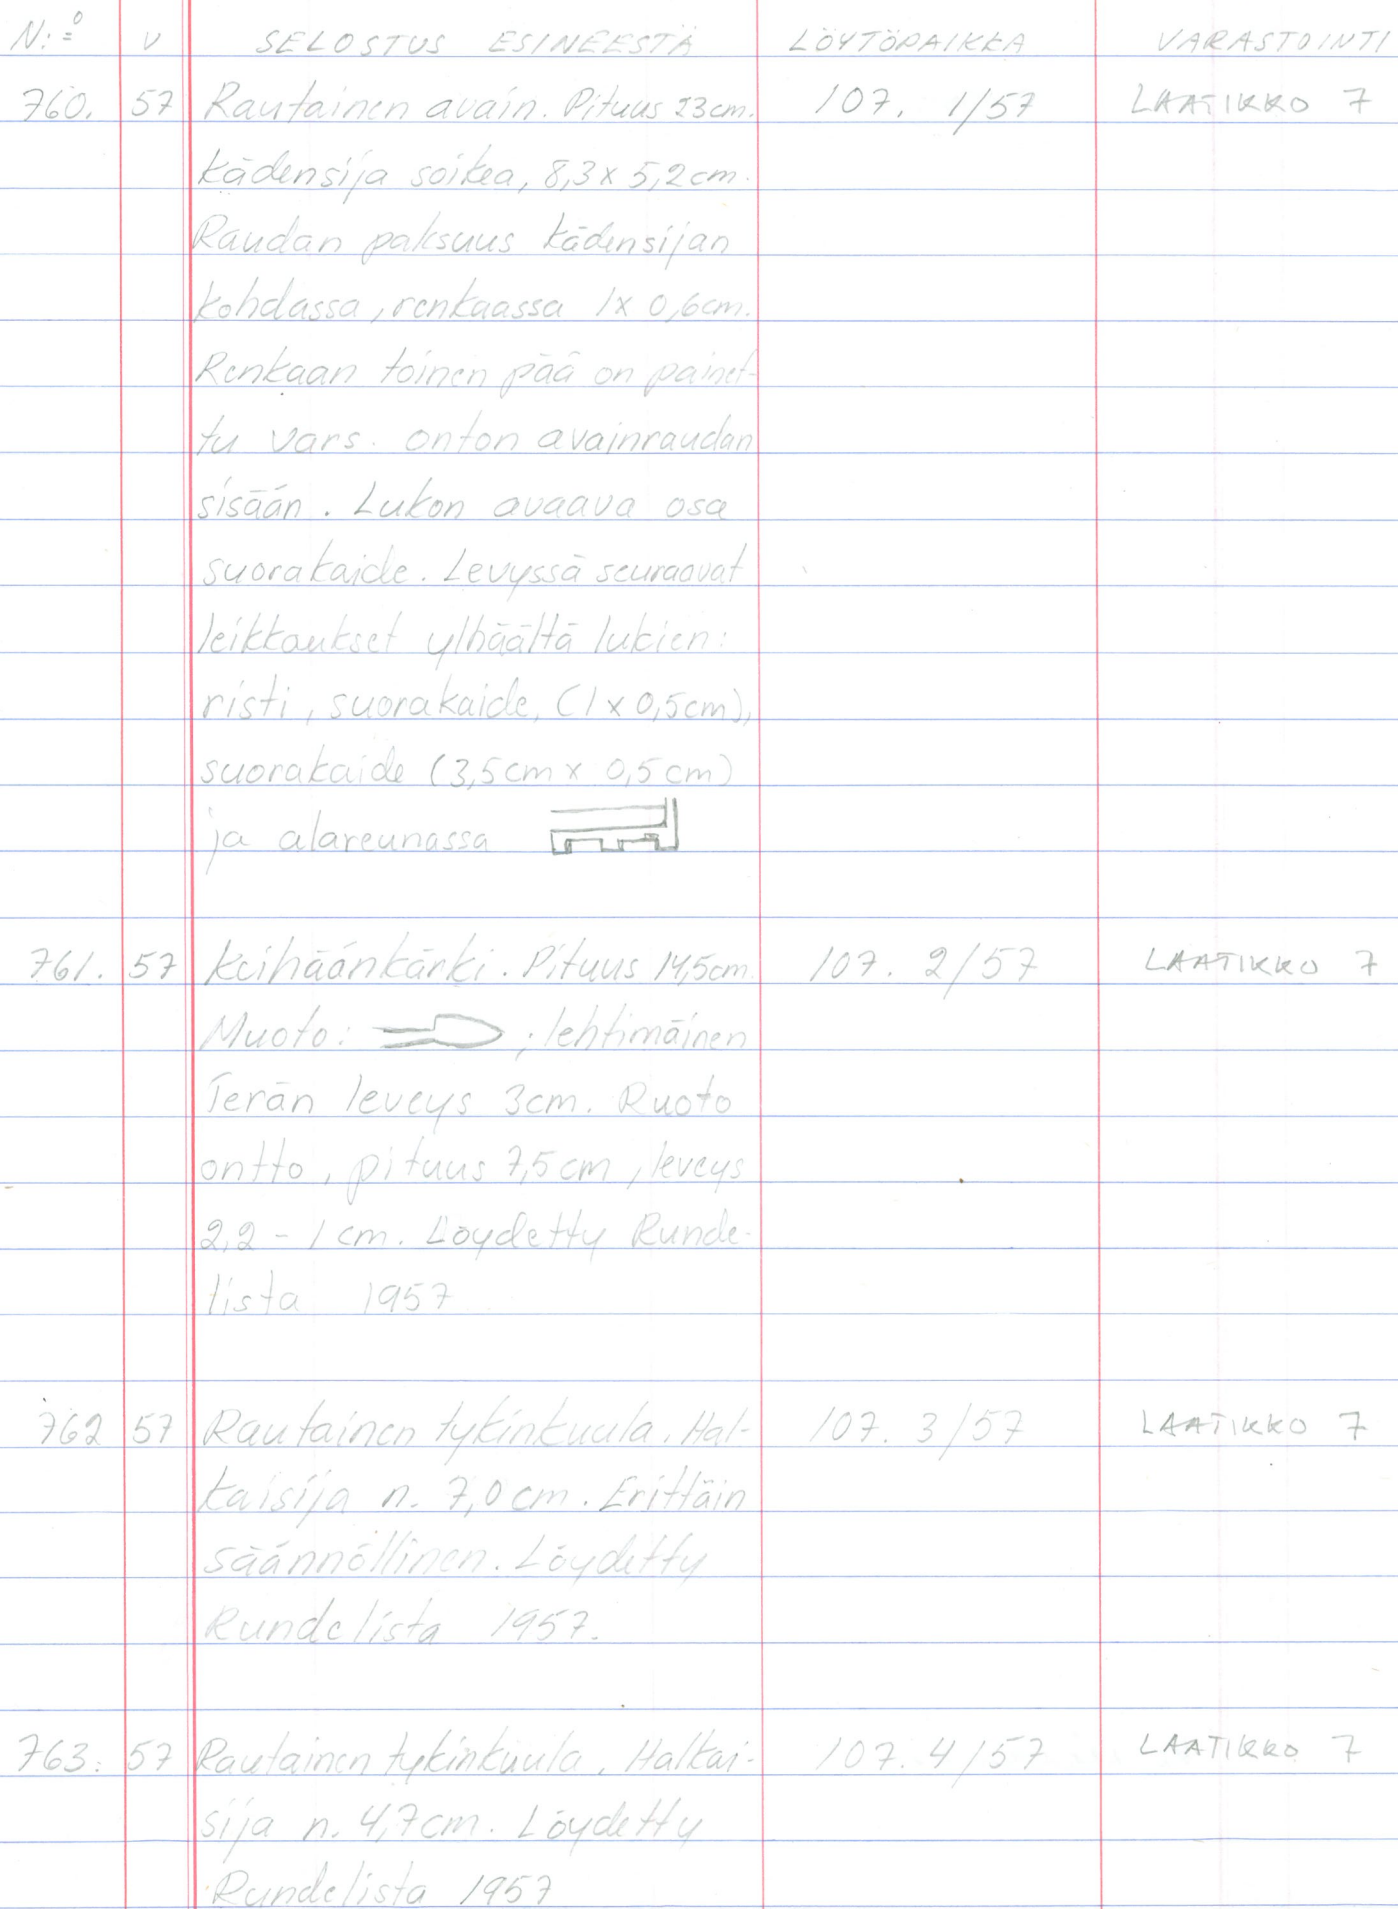 N:o V SELOSTUS ESINEESTÄ LÖYTÖPAIKKA VARASTOINTI
760. 57 Rautainen avain. Pituus 23cm. 107. 1/57 LAATIKKO 7
kädensija soikea, 8,3 x 5,2cm.
Raudan paksuus kädensijan
kohdassa, renkaassa 1x 0,6cm.
Renkaan toinen pää on painet-
tu vars. onton avainraudan
sisään. Lukon avaava osa
suorakaide. Levyssä seuraavat
leikkaukset ylhäältä lukien:
risti, suorakaide, (1 x 0,5cm),
suorakaide (3,5cm x 0,5cm)
ja alareunassa
761. 57 Keihäänkärki. Pituus 14,5cm. 107. 2/57 LAATIKKO 7
Muoto: ; lehtimäinen
Terän leveys 3cm. Ruoto
ontto, pituus 7,5cm, leveys
2,2 - 1 cm. Löydetty Runde-
lista 1957
762 57 Rautainen tykinkuula. Hal- 107. 3/57 LAATIKKO 7
kaisija n. 7,0cm. Erittäin
säännöllinen. Löydetty
Rundelista 1957.
763. 57 Rautainen tykinkuula. Halkai- 107. 4/57 LAATIKKO 7
sija n. 4,7cm. Löydetty
Rundelista 1957